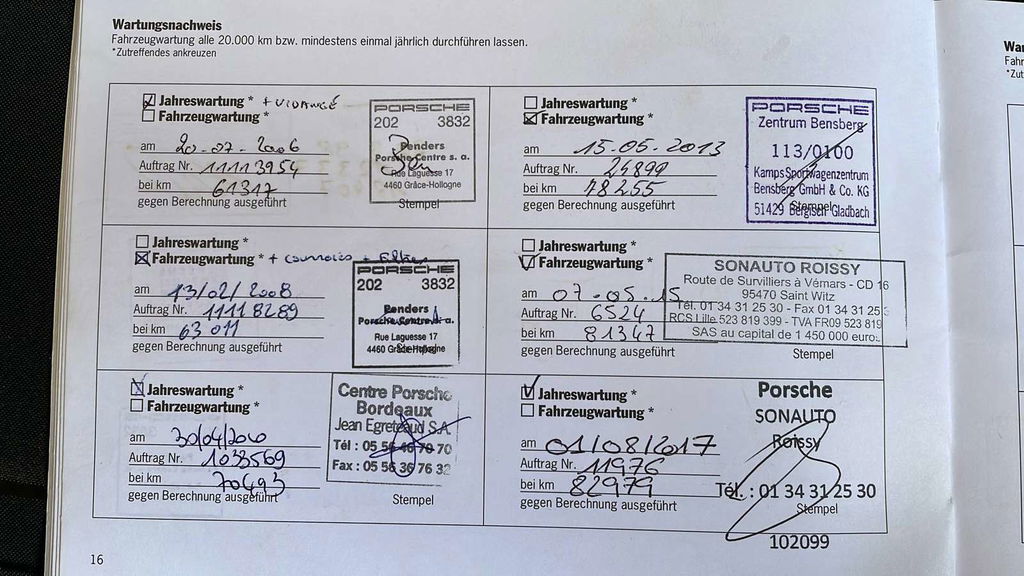 Wartungsnachweis
Fahrzeugwartung alle 20.000 km bzw. mindestens einmal jährlich durchführen lassen.
*Zutreffendes ankreuzen
Jahreswartung * + VIDANGE
Fahrzeugwartung *
am 20.07.2006
Auftrag Nr. 11113954
bei km 61317
gegen Berechnung ausgeführt
PORSCHE
202 3832
Penders
Porsche Centre s. a.
Rue Laguesse 17
4460 Grâce-Hollogne
Stempel
Jahreswartung *
Fahrzeugwartung *
am 15.05.2013
Auftrag Nr. 24899
bei km 78255
gegen Berechnung ausgeführt
PORSCHE
Zentrum Bensberg
113/0100
Kamps Sportwagenzentrum
Bensberg GmbH & Co. KG
51429 Bergisch Gladbach
Stempel
Jahreswartung *
Fahrzeugwartung * + courroies + filtre
am 13/02/2008
Auftrag Nr. 11118289
bei km 63011
gegen Berechnung ausgeführt
PORSCHE
202 3832
Penders
Porsche Centre s. a.
Rue Laguesse 17
4460 Grâce-Hollogne
Stempel
Jahreswartung *
Fahrzeugwartung *
am 07.05.15
Auftrag Nr. 6524
bei km 81347
gegen Berechnung ausgeführt
SONAUTO ROISSY
Route de Survilliers à Vémars - CD 16
95470 Saint Witz
Tél. 01 34 31 25 30 - Fax 01 34 31 25
RCS Lille 523 819 399 - TVA FR09 523 819
SAS au capital de 1 450 000 euros
Stempel
Jahreswartung *
Fahrzeugwartung *
am 30/04/2010
Auftrag Nr. 1033569
bei km 70493
gegen Berechnung ausgeführt
Centre Porsche
Bordeaux
Jean Egreteaud S.A.
Tél : 05 56 70 70
Fax : 05 56 36 76 32
Stempel
Jahreswartung *
Fahrzeugwartung *
am 01/08/2017
Auftrag Nr. 11976
bei km 82979
gegen Berechnung ausgeführt
Porsche
SONAUTO
Roissy
Tél. : 01 34 31 25 30
Stempel
102099
16